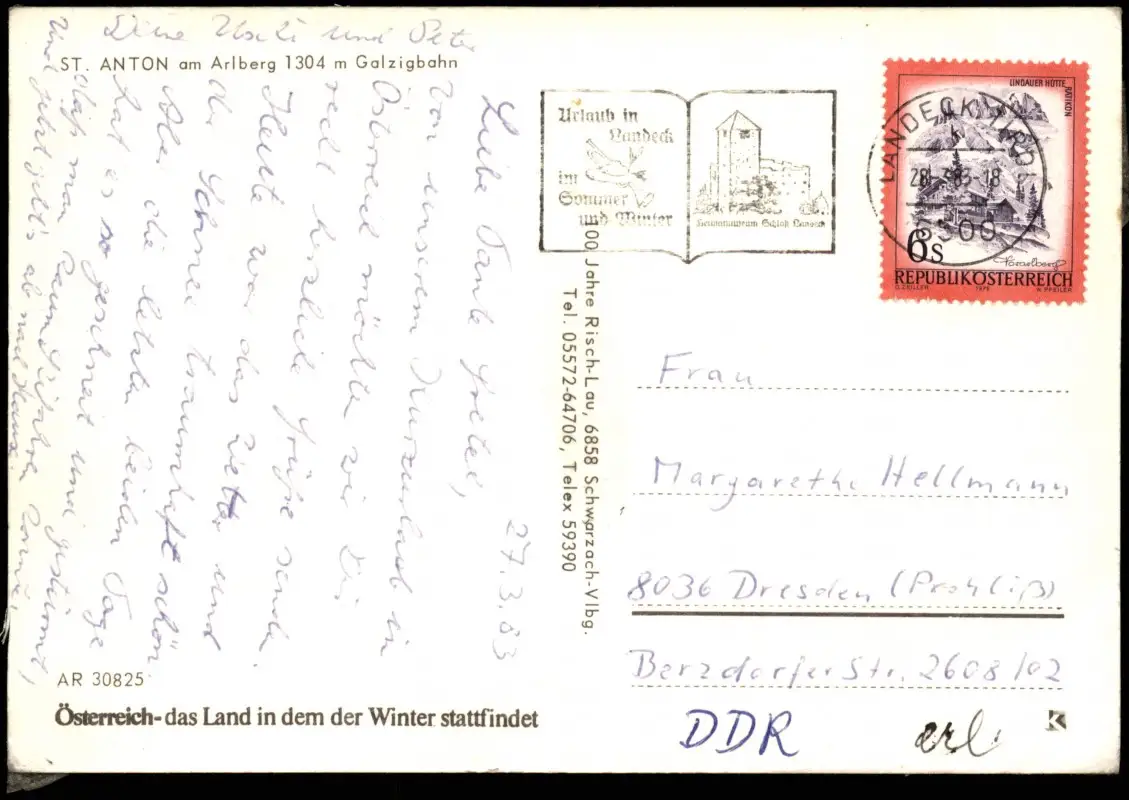 ST. ANTON am Arlberg 1304 m Galzigbahn
27.3.83
Liebe Tante Gretel,
von unserem Kurzurlaub in
Österreich möchten wir Dir
recht herzliche Grüße senden.
Heute war das Wetter und
der Schnee traumhaft schön
Aber die letzten beiden Tage
hat es so geschneit und gestürmt,
daß man kaum fahren konnte.
Und jetzt geht's ab nach Hause.
Deine Uschi und Peter
AR 30825
Österreich-das Land in dem der Winter stattfindet
100 Jahre Risch-Lau, 6858 Schwarzach-Vlbg.
Tel. 05572-64706, Telex 59390
Urlaub in
Landeck
im
Sommer
und Winter
Heimatmuseum Schloß Landeck
LANDECK, TIROL
28. 3.83-18
6500
LINDAUER HÜTTE
RÄTIKON
6s
Vorarlberg
REPUBLIK ÖSTERREICH
O. ZEILLER 1975 W. PFEILER
Frau
Margarethe Hellmann
8036 Dresden (Prohliß)
Berzdorfer Str. 2608/02
DDR
erl
K